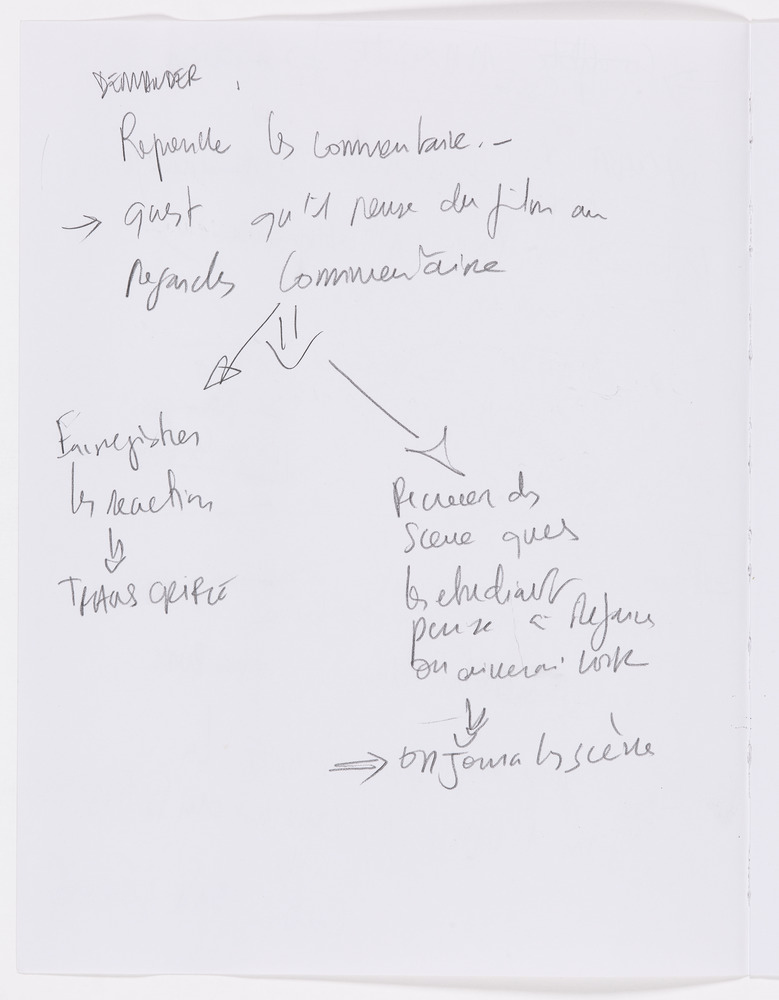 DEMANDER.
Reprendre les commentaire. –
→ quest qu'il pense du film au
Regards Commentaire
Enregistrer
les reaction
TRANSCRIRE
des
Scene ques
les etudiant
pense a Refaire
on aimerai voir
⇒ on Jouera les scène